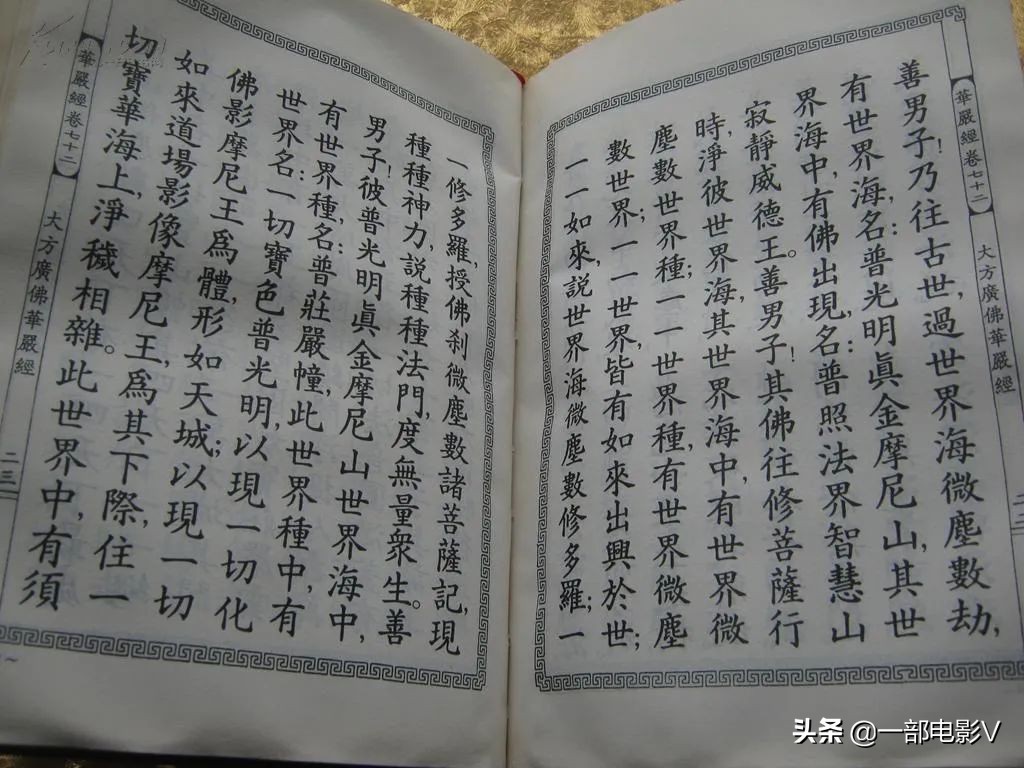 【華嚴經卷七十二】
大方廣佛華嚴經
二二
善男子!乃往古世,過世界海微塵數劫,
有世界海,名:普光明眞金摩尼山,其世
界海中,有佛出現,名:普照法界智慧山
寂靜威德王。善男子!其佛往修菩薩行
時,淨彼世界海,其世界海中,有世界微
塵數世界種;一一世界種,有世界微塵
數世界;一一世界,皆有如來出興於世;
一一如來,說世界海微塵數修多羅;一
一修多羅,授佛刹微塵數諸菩薩記,現
種種神力,説種種法門,度無量衆生。善
男子!彼普光明眞金摩尼山世界海中,
有世界種,名:普莊嚴幢,此世界種中,有
世界名:一切寶色普光明,以現一切化
佛影摩尼王爲體,形如天城;以現一切
如來道場影像摩尼王,爲其下際,住一
切寶華海上,淨穢相雜。此世界中,有須
【華嚴經卷七十二】
大方廣佛華嚴經
二三
头条 @一部电影V